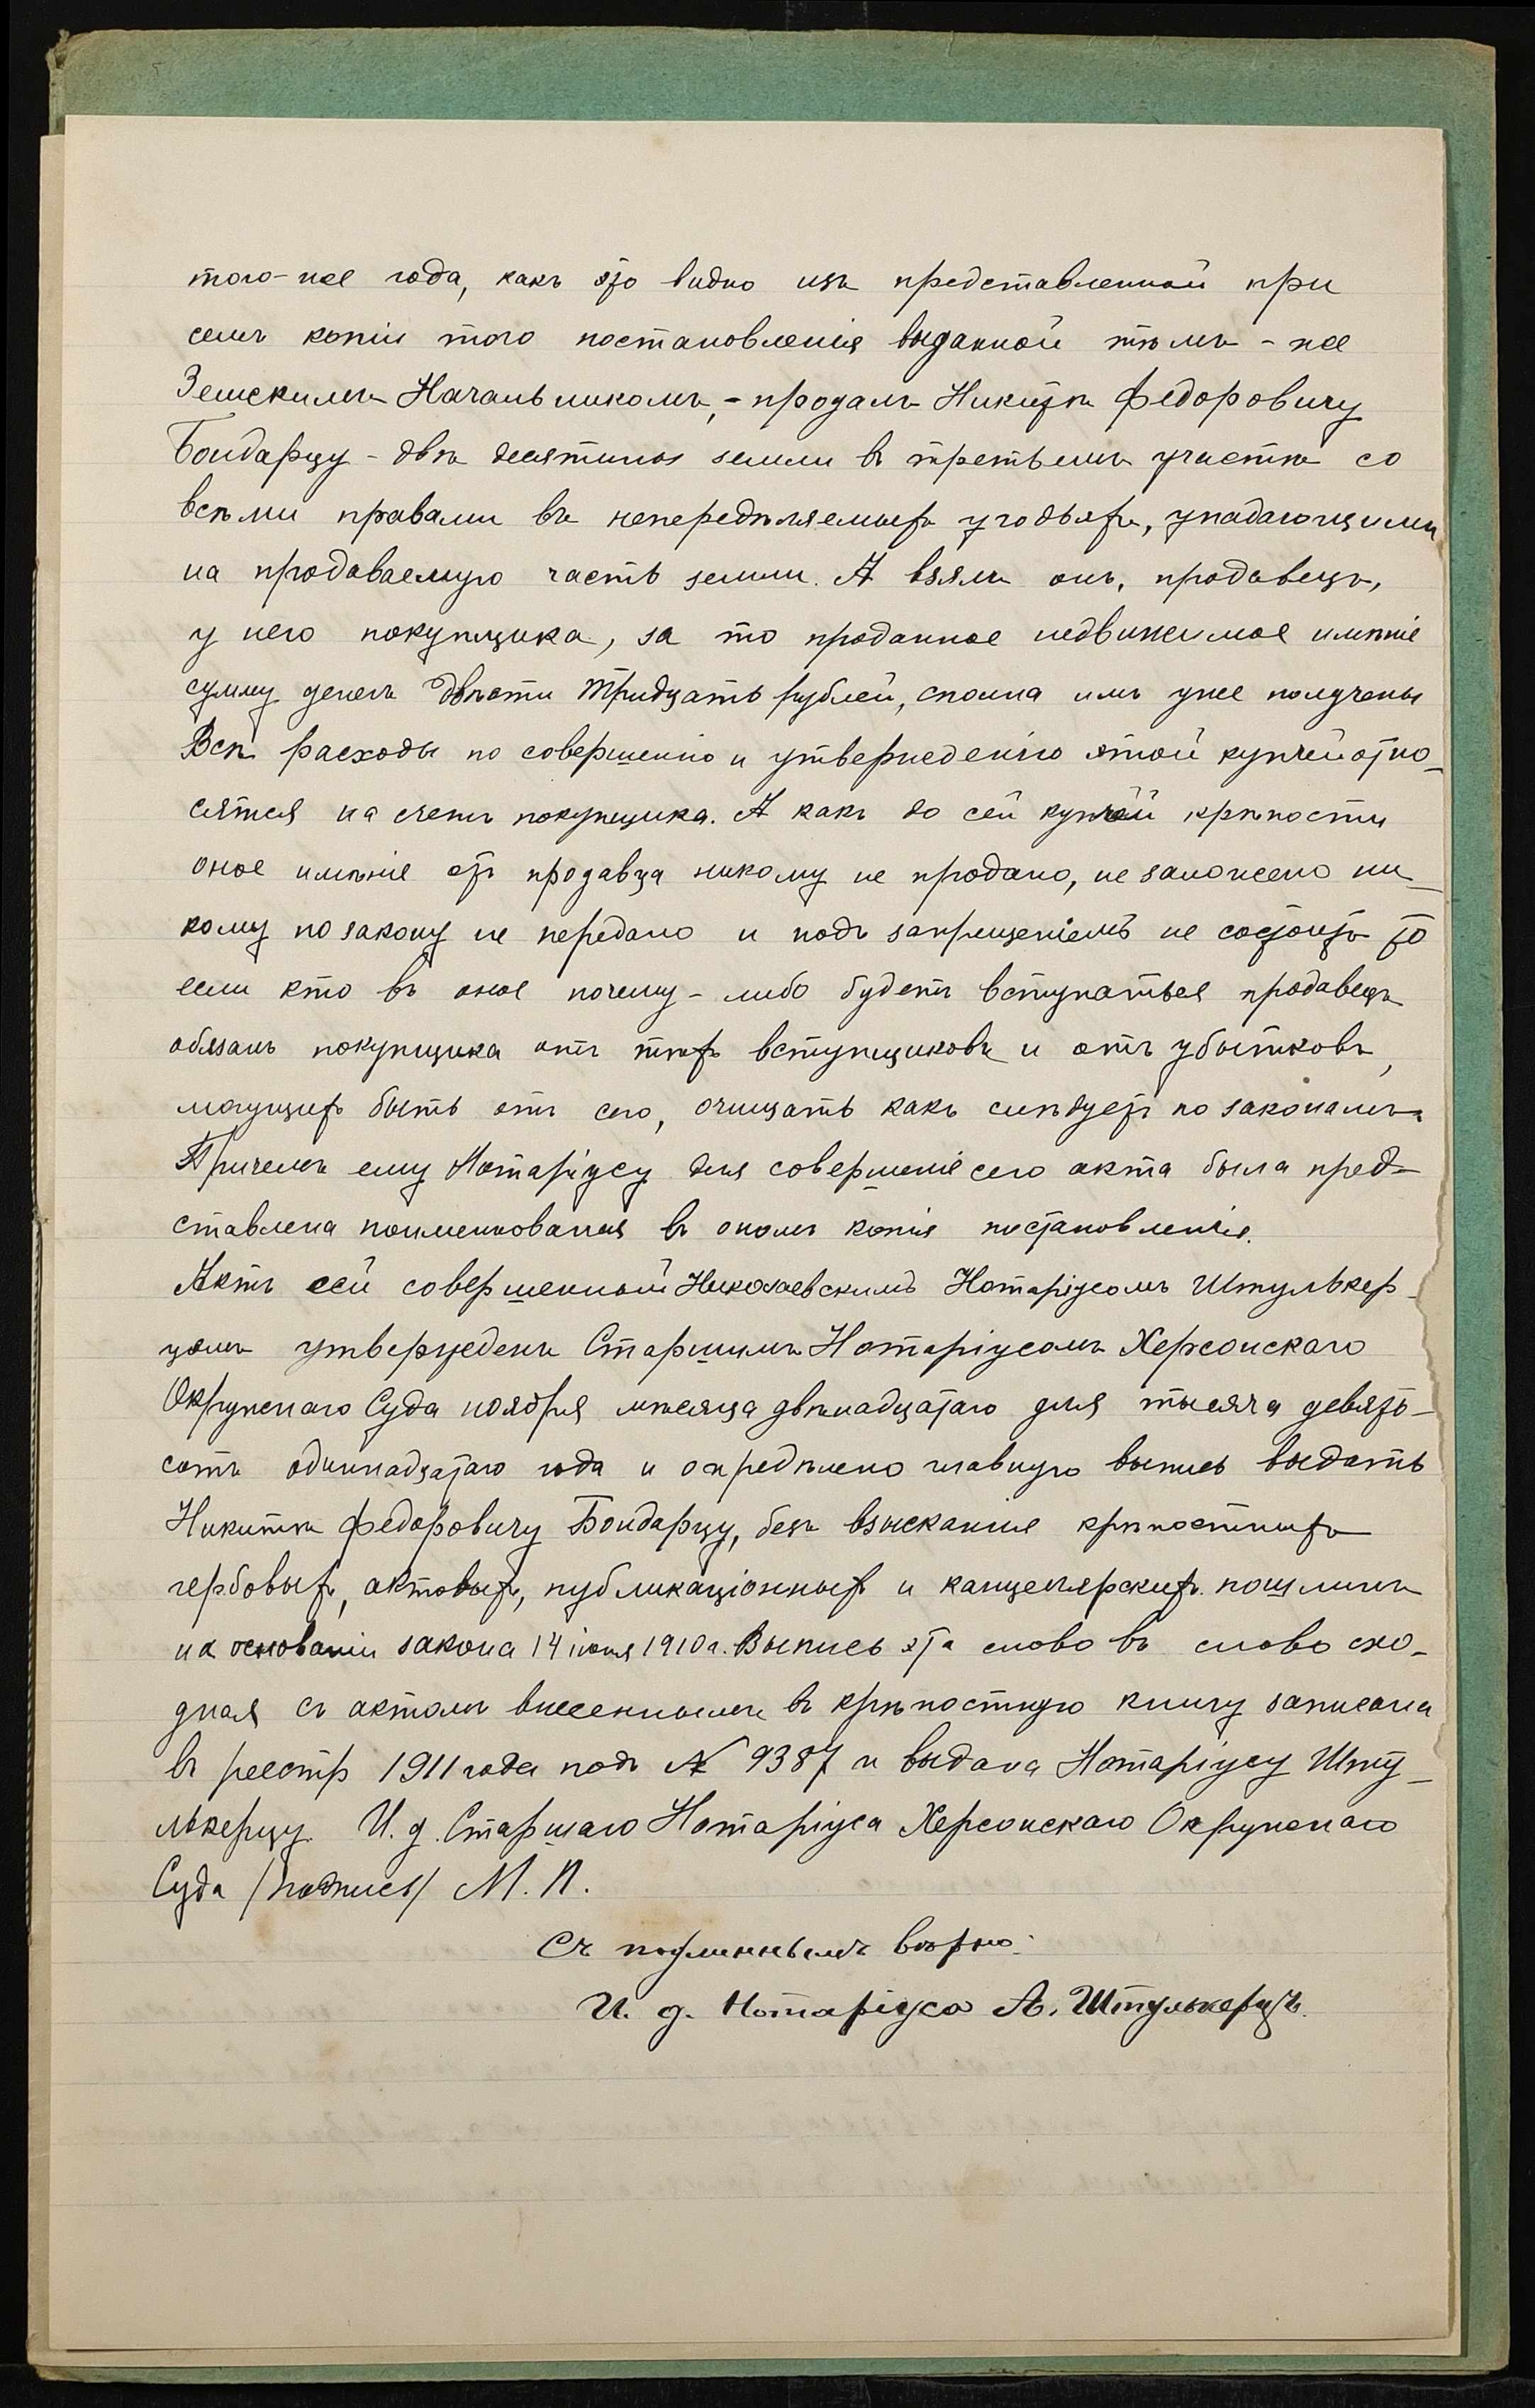 того-же года, какъ это видно изъ представленной при
семъ копіи того постановленія выданной тѣмъ-же
Земскимъ Начальникомъ, - продалъ Никитѣ Федоровичу
Бондарцу - двѣ десятины земли въ третьемъ участкѣ со
всѣми правами въ непередѣляемыхъ угодьяхъ, упадающими
на продаваемую часть земли. А взялъ онъ, продавецъ,
у него покупщика, за то проданное недвижимое имѣніе
сумму денегъ двѣсти тридцать рублей, сполна имъ уже получены
Всѣ расходы по совершенію и утвержденію этой купчей отно-
сятся на счетъ покупщика. А какъ до сей купчей крѣпости
оное имѣніе отъ продавца никому не продано, не заложено ни-
кому по закону не передано и подъ запрещеніемъ не состоитъ то
если кто въ оное почему-либо будетъ вступаться продавецъ
обязанъ покупщика отъ тѣхъ вступщиковъ и отъ убытковъ,
могущихъ быть отъ сего, очищать какъ слѣдуетъ по законамъ.
Причемъ ему Нотаріусу для совершеніе сего акта была пред-
ставлена поименованная въ ономъ копія постановленія.
Актъ сей совершенный Николаевскимъ Нотаріусомъ Штулькер-
цомъ утвержденъ Старшимъ Нотаріусомъ Херсонскаго
Окружнаго Суда ноября мѣсяца двѣнадцатаго дня тысяча девять-
сотъ одиннадцатаго года и опредѣлено главную выпись выдать
Никитѣ Федоровичу Бондарцу, безъ взысканія крѣпостныхъ
гербовыхъ, актовыхъ, публикаціонныхъ и канцелярскихъ пошлинъ
на основаніи закона 14 іюня 1910 г. Выпись эта слово въ слово схо-
дная съ актомъ внесеннымъ въ крѣпостную книгу записана
въ реестр 1911 года подъ № 9387 и выдана Нотаріусу Шту-
лькерцу. И. д. Старшаго Нотаріуса Херсонскаго Окружнаго
Суда /подпись/ М. П.
Съ подлиннымъ вѣрно:
И. д. Нотаріуса А. Штулькерцъ.